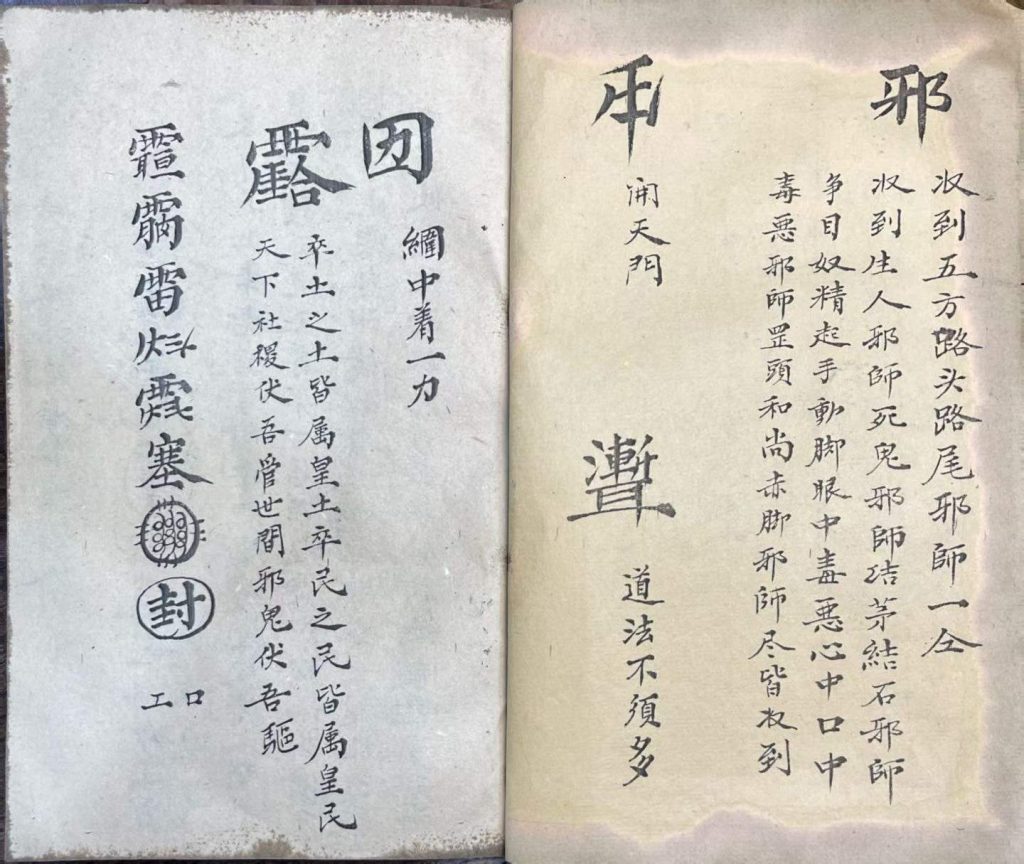 邪
收到五方路头路尾邪師一仝
收到生人邪師死鬼邪師结茅結石邪師
争目奴精起手動脚眼中毒悪心中口中
毒悪邪師罡頭和尚赤脚邪師尽皆收到
開天門
道法不須多
囙
綱中着一力
卒土之土皆属皇土卒民之民皆属皇民
天下社稷伏吾管世間邪鬼伏吾驅
塞
封
口工